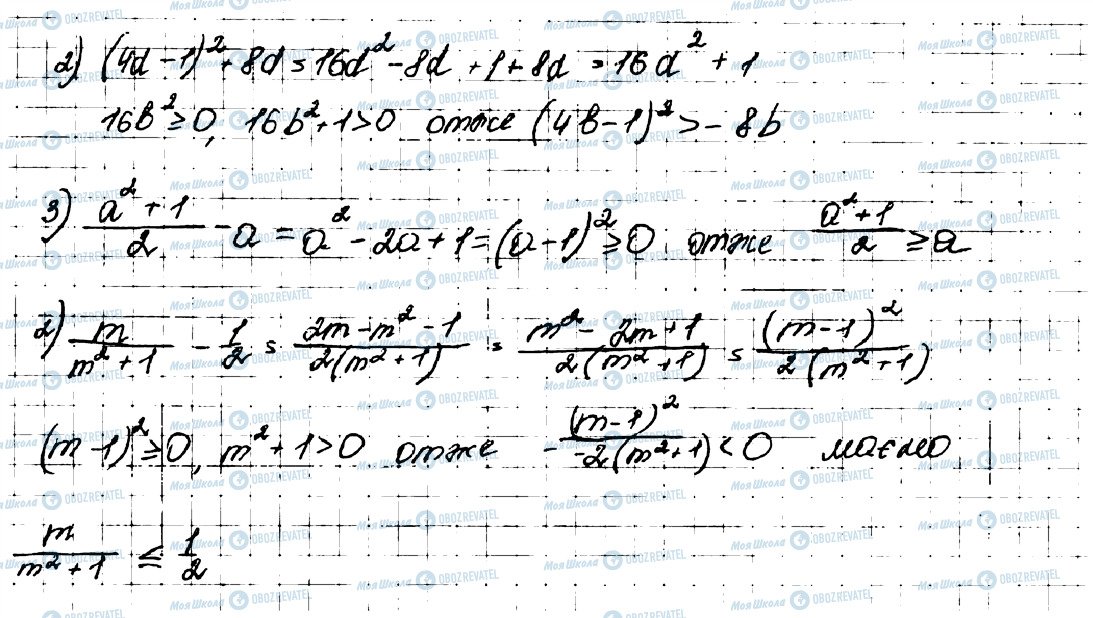 2) (4d - 1)² + 8d = 16d² - 8d + 1 + 8d = 16d² + 1
16b² ≥ 0, 16b² + 1 > 0 отже (4b - 1)² > - 8b
3) \frac{a² + 1}{2} - a = a² - 2a + 1 = (a - 1)² ≥ 0 отже \frac{a² + 1}{2} ≥ a
2) \frac{m}{m² + 1} - \frac{1}{2} = \frac{2m - m² - 1}{2(m² + 1)} = \frac{m² - 2m + 1}{2(m² + 1)} = \frac{(m - 1)²}{2(m² + 1)}
(m - 1)² ≥ 0, m² + 1 > 0 отже - \frac{(m - 1)²}{-2(m² + 1)} < 0 маємо
\frac{m}{m² + 1} ≤ \frac{1}{2}